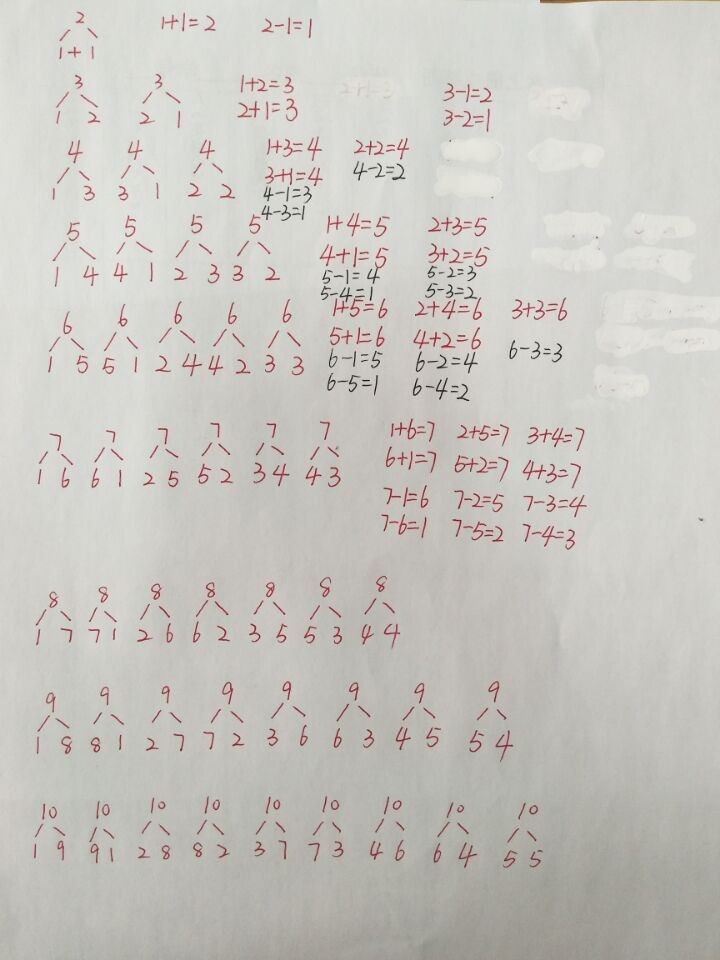 2 1+1=2 2-1=1
1+1
3 3 1+2=3 2+1=3 3-1=2
1 2 2 1 2+1=3 3-2=1
4 4 4 1+3=4 2+2=4
1 3 3 1 2 2 3+1=4 4-2=2
4-1=3
4-3=1
5 5 5 5 1+4=5 2+3=5
1 4 4 1 2 3 3 2 4+1=5 3+2=5
5-1=4 5-2=3
5-4=1 5-3=2
6 6 6 6 6 1+5=6 2+4=6 3+3=6
1 5 5 1 2 4 4 2 3 3 5+1=6 4+2=6
6-1=5 6-2=4 6-3=3
6-5=1 6-4=2
7 7 7 7 7 7 1+6=7 2+5=7 3+4=7
1 6 6 1 2 5 5 2 3 4 4 3 6+1=7 5+2=7 4+3=7
7-1=6 7-2=5 7-3=4
7-6=1 7-5=2 7-4=3
8 8 8 8 8 8 8
1 7 7 1 2 6 6 2 3 5 5 3 4 4
9 9 9 9 9 9 9 9
1 8 8 1 2 7 7 2 3 6 6 3 4 5 5 4
10 10 10 10 10 10 10 10 10
1 9 9 1 2 8 8 2 3 7 7 3 4 6 6 4 5 5